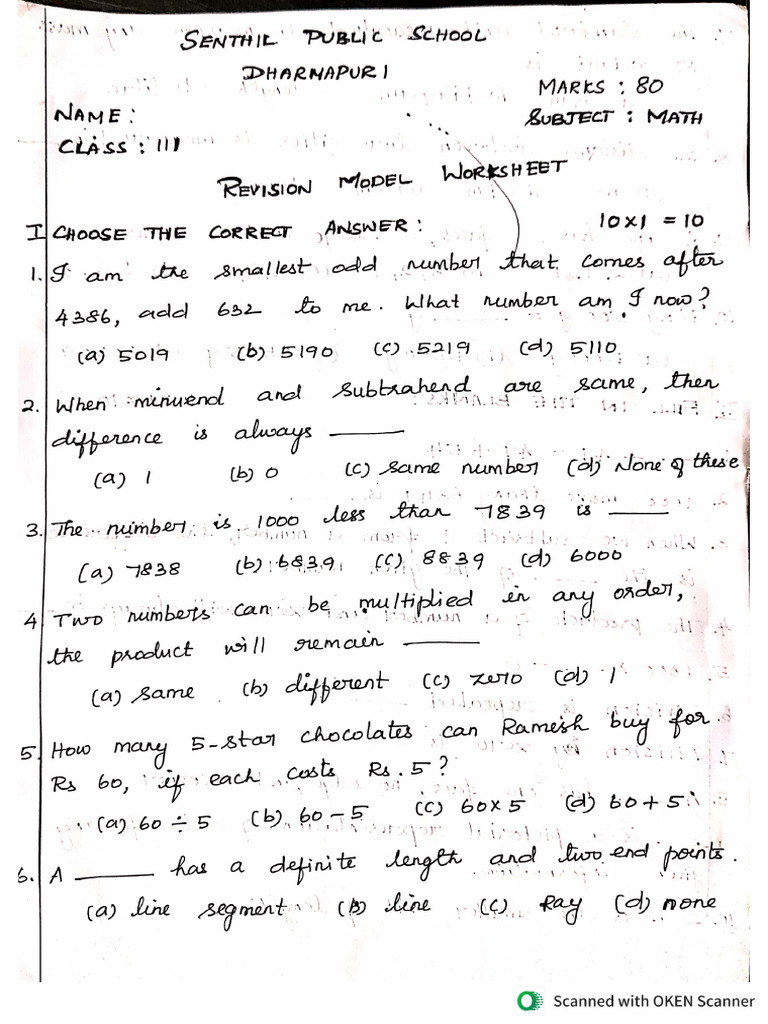 SENTHIL PUBLIC SCHOOL
DHARMAPURI
MARKS : 80
NAME :
SUBJECT : MATH
CLASS : III
REVISION MODEL WORKSHEET
I CHOOSE THE CORRECT ANSWER : 10x1 = 10
1. I am the smallest odd number that comes after
4386, add 632 to me. What number am I now?
(a) 5019 (b) 5190 (c) 5219 (d) 5110
2. When minuend and subtrahend are same, then
difference is always ____
(a) 1 (b) 0 (c) same number (d) None of these
3. The number is 1000 less than 7839 is ____
(a) 7838 (b) 6839 (c) 8839 (d) 6000
4 Two numbers can be multiplied in any order,
the product will remain ____
(a) same (b) different (c) zero (d) 1
5. How many 5-star chocolates can Ramesh buy for
Rs 60, if each costs Rs. 5?
(a) 60 ÷ 5 (b) 60 - 5 (c) 60 x 5 (d) 60 + 5
6. A ____ has a definite length and two end points.
(a) line segment (b) line (c) Ray (d) none
Scanned with OKEN Scanner